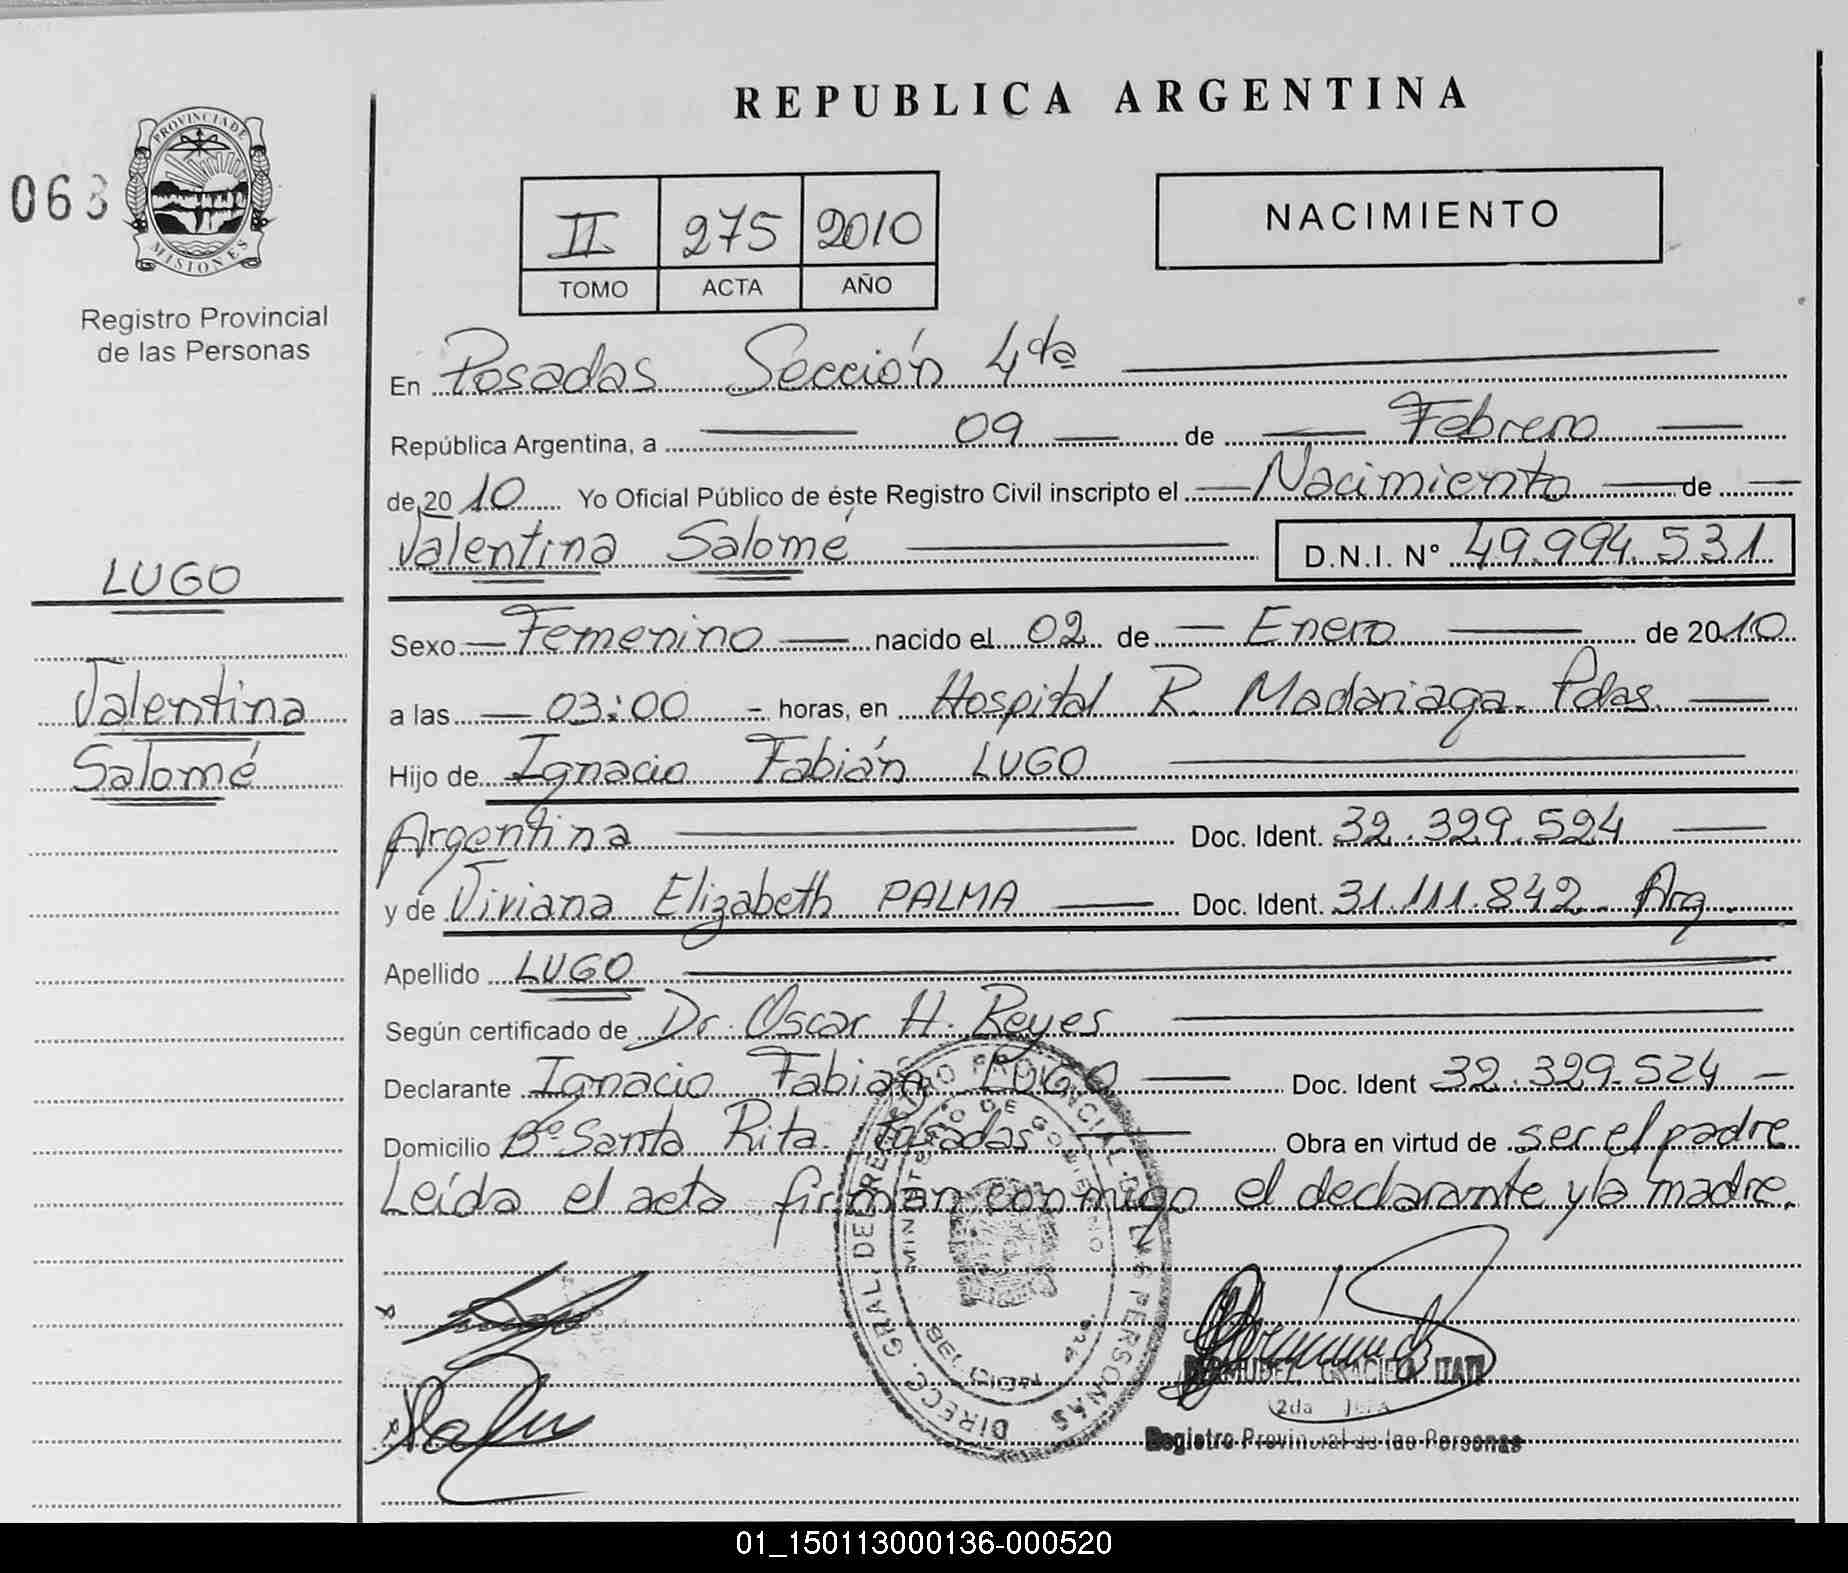 REPUBLICA ARGENTINA
063
PROVINCIA DE
MISIONES
Registro Provincial
de las Personas
II 275 2010
TOMO ACTA AÑO
NACIMIENTO
En Posadas Sección 4da
República Argentina, a 09 de Febrero
de 2010 Yo Oficial Público de éste Registro Civil inscripto el Nacimiento de
Valentina Salomé D.N.I. N° 49.994.531
LUGO
Valentina
Salomé
Sexo Femenino nacido el 02 de Enero de 2010
a las 03:00 - horas, en Hospital R. Madariaga. Pdas.
Hijo de Ignacio Fabián LUGO
Argentina Doc. Ident. 32.329.524
y de Viviana Elizabeth PALMA Doc. Ident. 31.111.842 - Arg.
Apellido LUGO
Según certificado de Dr. Oscar H. Reyes
Declarante Ignacio Fabian LUGO Doc. Ident 32.329.524 -
Domicilio B° Santa Rita. Posadas Obra en virtud de ser el padre
Leída el acta firman conmigo el declarante y la madre.
DIRECC. GRAL. DE REGISTRO PROVINCIAL DE LAS PERSONAS
MINISTERIO DE GOBIERNO
BERMUDEZ GRACIELA ITATI
2da Jefa
Registro Provincial de las Personas
01_150113000136-000520